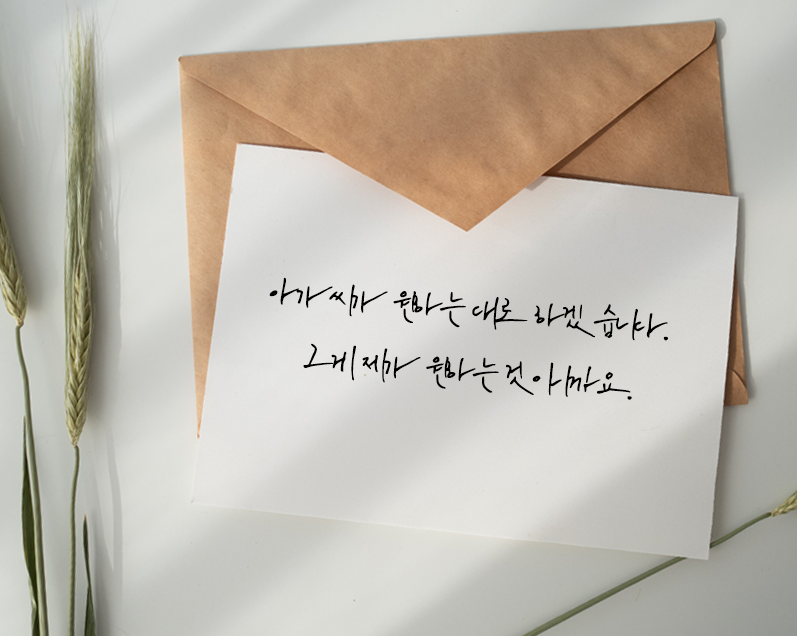 아가씨가 원하는대로 하겠습니다.
그게 제가 원하는 것 아까요.